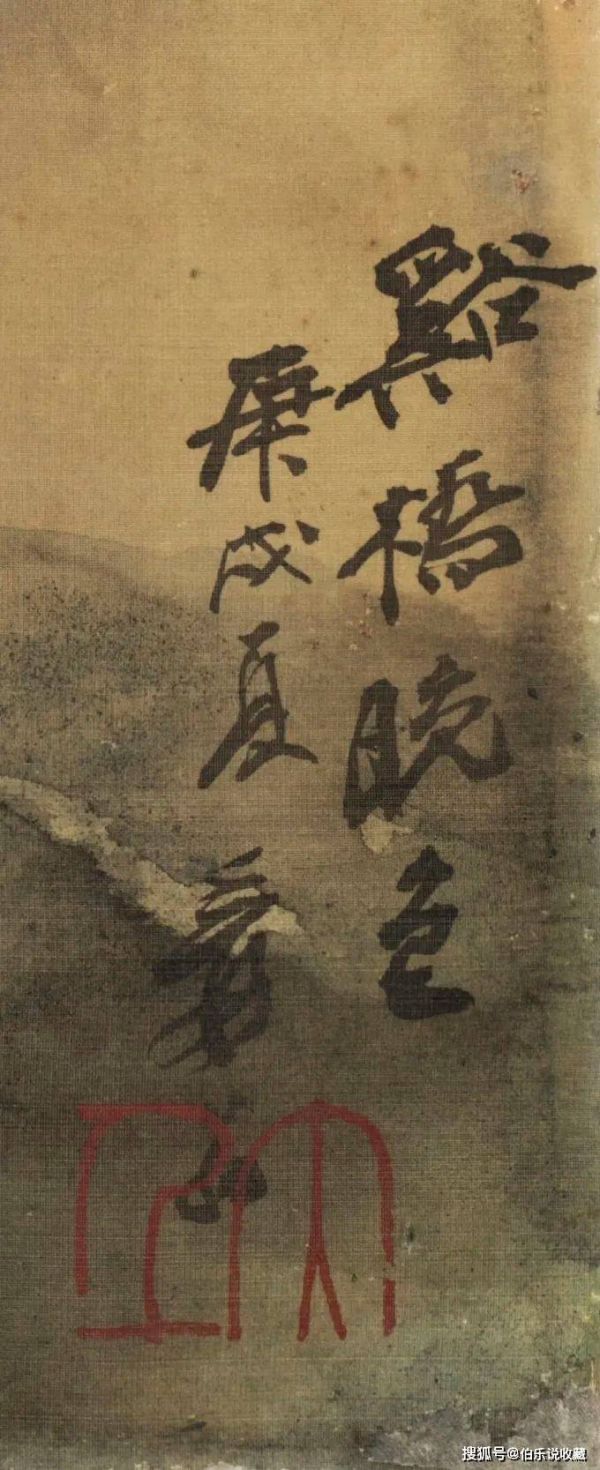 谿橋晚色
庚戌夏
搜狐号@伯乐说收藏